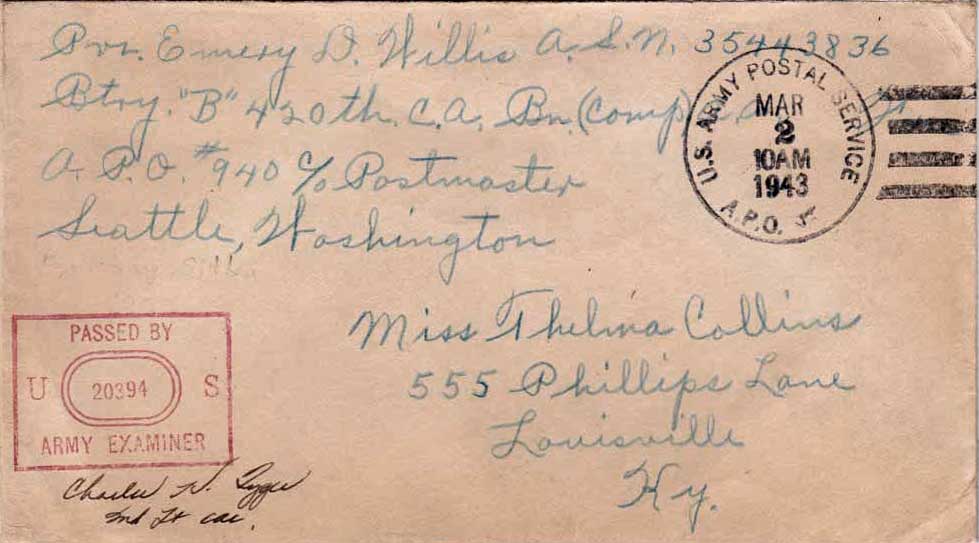 Pvt. Emery D. Willis A.S.N. 35443836
Btry. "B" 420th. C.A. Bn. (Comp)
A.P.O. #940 c/o Postmaster
Seattle, Washington
U.S. ARMY POSTAL SERVICE
MAR
2
10AM
1943
A.P.O.
Miss Thelma Collins
555 Phillips Lane
Louisville
Ky.
PASSED BY
U 20394 S
ARMY EXAMINER
Charles W.
2nd Lt cac.